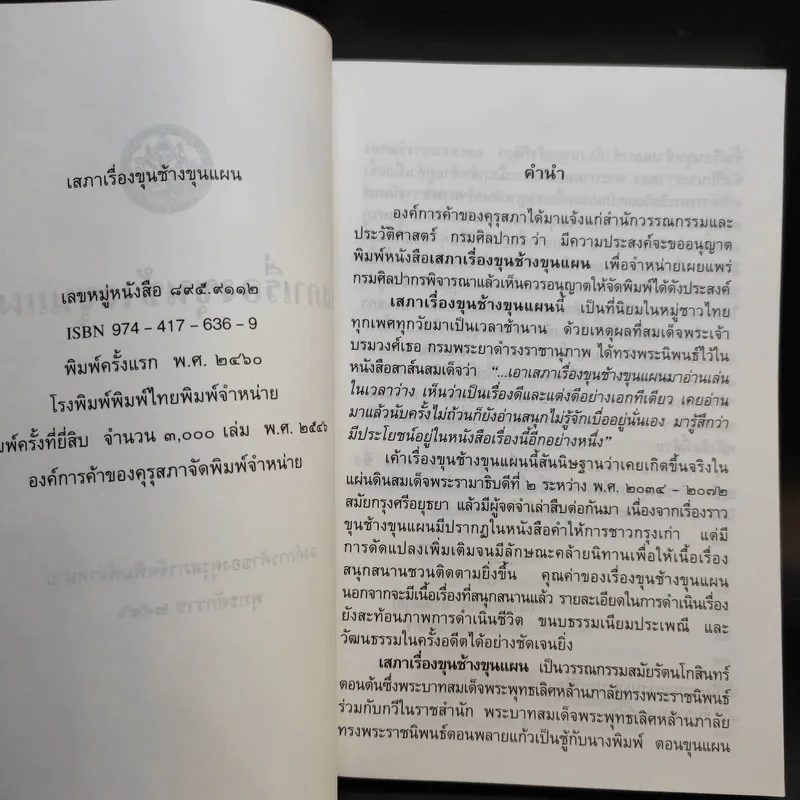 เสภาเรื่องขุนช้างขุนแผน
เลขหมู่หนังสือ ๘๙๕.๙๑๑๒
ISBN 974 – 417 – 636 – 9
พิมพ์ครั้งแรก พ.ศ. ๒๔๖๐
โรงพิมพ์พิมพ์ไทยพิมพ์จำหน่าย
พิมพ์ครั้งที่ยี่สิบ จำนวน ๓,๐๐๐ เล่ม พ.ศ. ๒๕๔๖
องค์การค้าของคุรุสภาจัดพิมพ์จำหน่าย
คำนำ
องค์การค้าของคุรุสภาได้มาแจ้งแก่สำนักวรรณกรรมและ
ประวัติศาสตร์ กรมศิลปากร ว่า มีความประสงค์จะขออนุญาต
พิมพ์หนังสือเสภาเรื่องขุนช้างขุนแผน เพื่อจำหน่ายเผยแพร่
กรมศิลปากรพิจารณาแล้วเห็นควรอนุญาตให้จัดพิมพ์ได้ดังประสงค์
เสภาเรื่องขุนช้างขุนแผนนี้ เป็นที่นิยมในหมู่ชาวไทย
ทุกเพศทุกวัยมาเป็นเวลาช้านาน ด้วยเหตุผลที่สมเด็จพระเจ้า
บรมวงศ์เธอ กรมพระยาดำรงราชานุภาพ ได้ทรงพระนิพนธ์ไว้ใน
หนังสือสาส์นสมเด็จว่า “...เอาเสภาเรื่องขุนช้างขุนแผนมาอ่านเล่น
ในเวลาว่าง เห็นว่าเป็นเรื่องดีและแต่งดีอย่างเอกทีเดียว เคยอ่าน
มาแล้วนับครั้งไม่ถ้วนก็ยังอ่านสนุกไม่รู้จักเบื่ออยู่นั่นเอง มารู้สึกว่า
มีประโยชน์อยู่ในหนังสือเรื่องนี้อีกอย่างหนึ่ง”
เค้าเรื่องขุนช้างขุนแผนนี้สันนิษฐานว่าเคยเกิดขึ้นจริงใน
แผ่นดินสมเด็จพระรามาธิบดีที่ ๒ ระหว่าง พ.ศ. ๒๐๓๔ – ๒๐๗๒
สมัยกรุงศรีอยุธยา แล้วมีผู้จดจำเล่าสืบต่อกันมา เนื่องจากเรื่องราว
ขุนช้างขุนแผนมีปรากฏในหนังสือคำให้การชาวกรุงเก่า แต่มี
การดัดแปลงเพิ่มเติมจนมีลักษณะคล้ายนิทานเพื่อให้เนื้อเรื่อง
สนุกสนานชวนติดตามยิ่งขึ้น คุณค่าของเรื่องขุนช้างขุนแผน
นอกจากจะมีเนื้อเรื่องที่สนุกสนานแล้ว รายละเอียดในการดำเนินเรื่อง
ยังสะท้อนภาพการดำเนินชีวิต ขนบธรรมเนียมประเพณี และ
วัฒนธรรมในครั้งอดีตได้อย่างชัดเจนยิ่ง
เสภาเรื่องขุนช้างขุนแผน เป็นวรรณกรรมสมัยรัตนโกสินทร์
ตอนต้นซึ่งพระบาทสมเด็จพระพุทธเลิศหล้านภาลัยทรงพระราชนิพนธ์
ร่วมกับกวีในราชสำนัก พระบาทสมเด็จพระพุทธเลิศหล้านภาลัย
ทรงพระราชนิพนธ์ตอนพลายแก้วเป็นชู้กับนางพิมพ์ ตอนขุนแผน